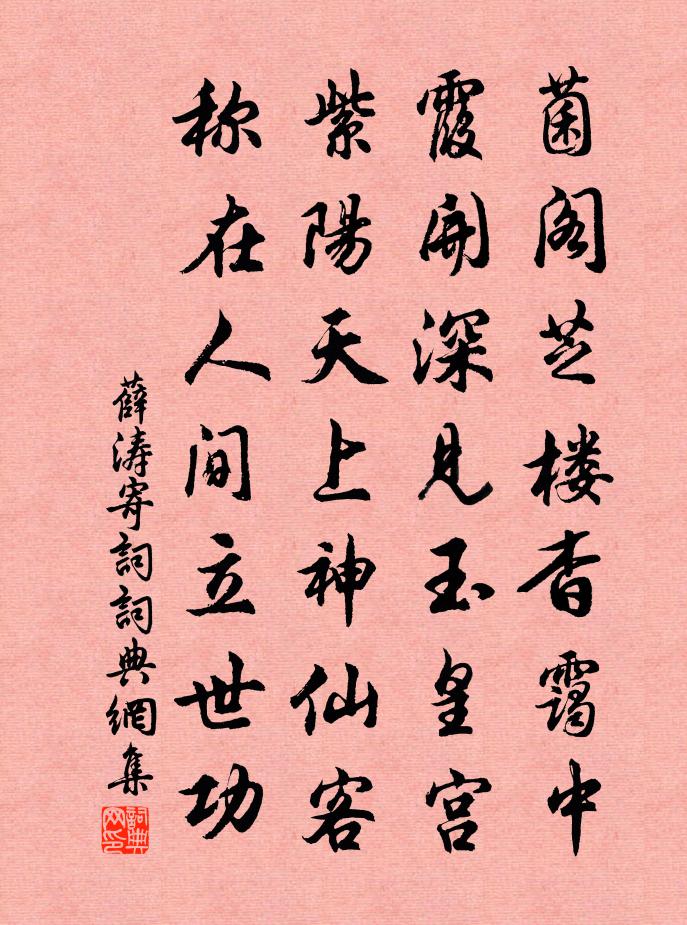 菌阁芝楼杳霭中
霞開深見玉皇宫
紫陽天上神仙客
称在人间立世功
薛涛寄詞詞典網集
詞典网印